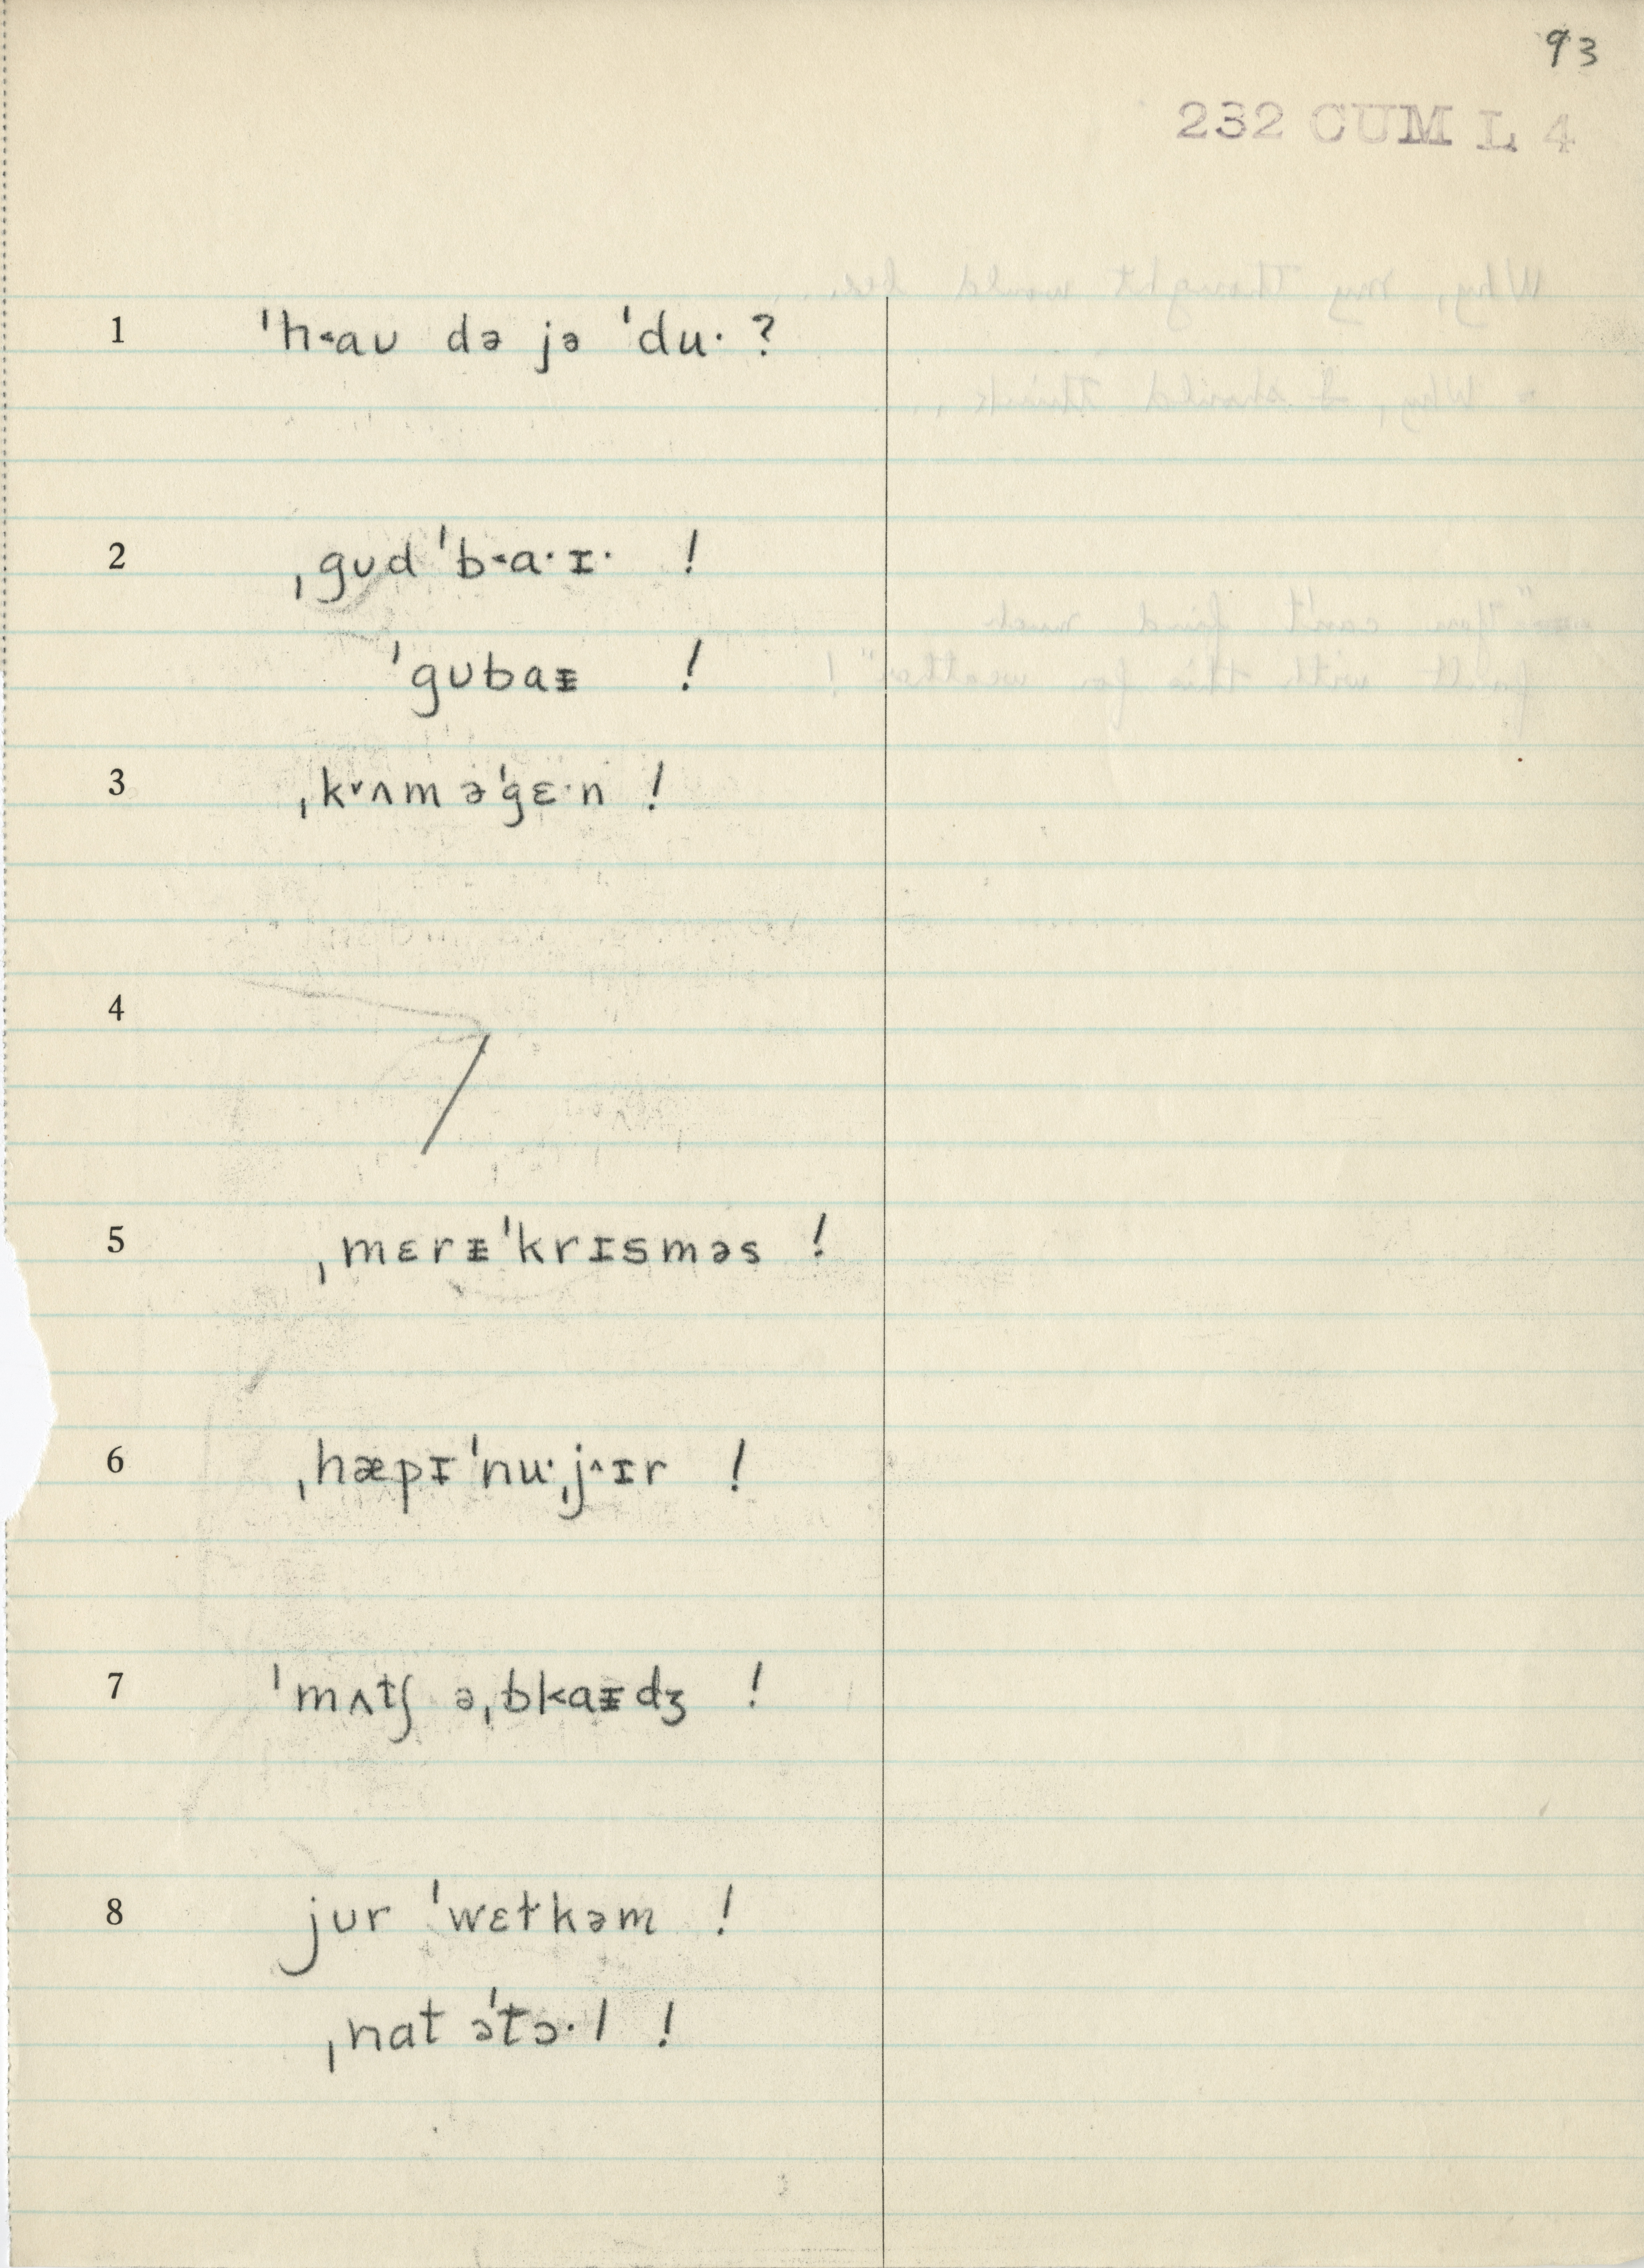 93
232 CUM L 4
1 ˈh˂aʊ də jə ˈdu· ?
2 ˌgʊdˈb˂a·ɪ· !
ˈgʊbaᵻ !
3 ˌk˅ʌm əˈgɛ·n !
4 /
5 ˌmɛrᵻˈkrɪsməs !
6 ˌhæpɪˈnu·ˌj˄ɪr !
7 ˈmʌtʃ əˌbl˂aᵻdʒ !
8 jʊr ˈwɛɫkəm !
ˌnat əˈtɔ·l !